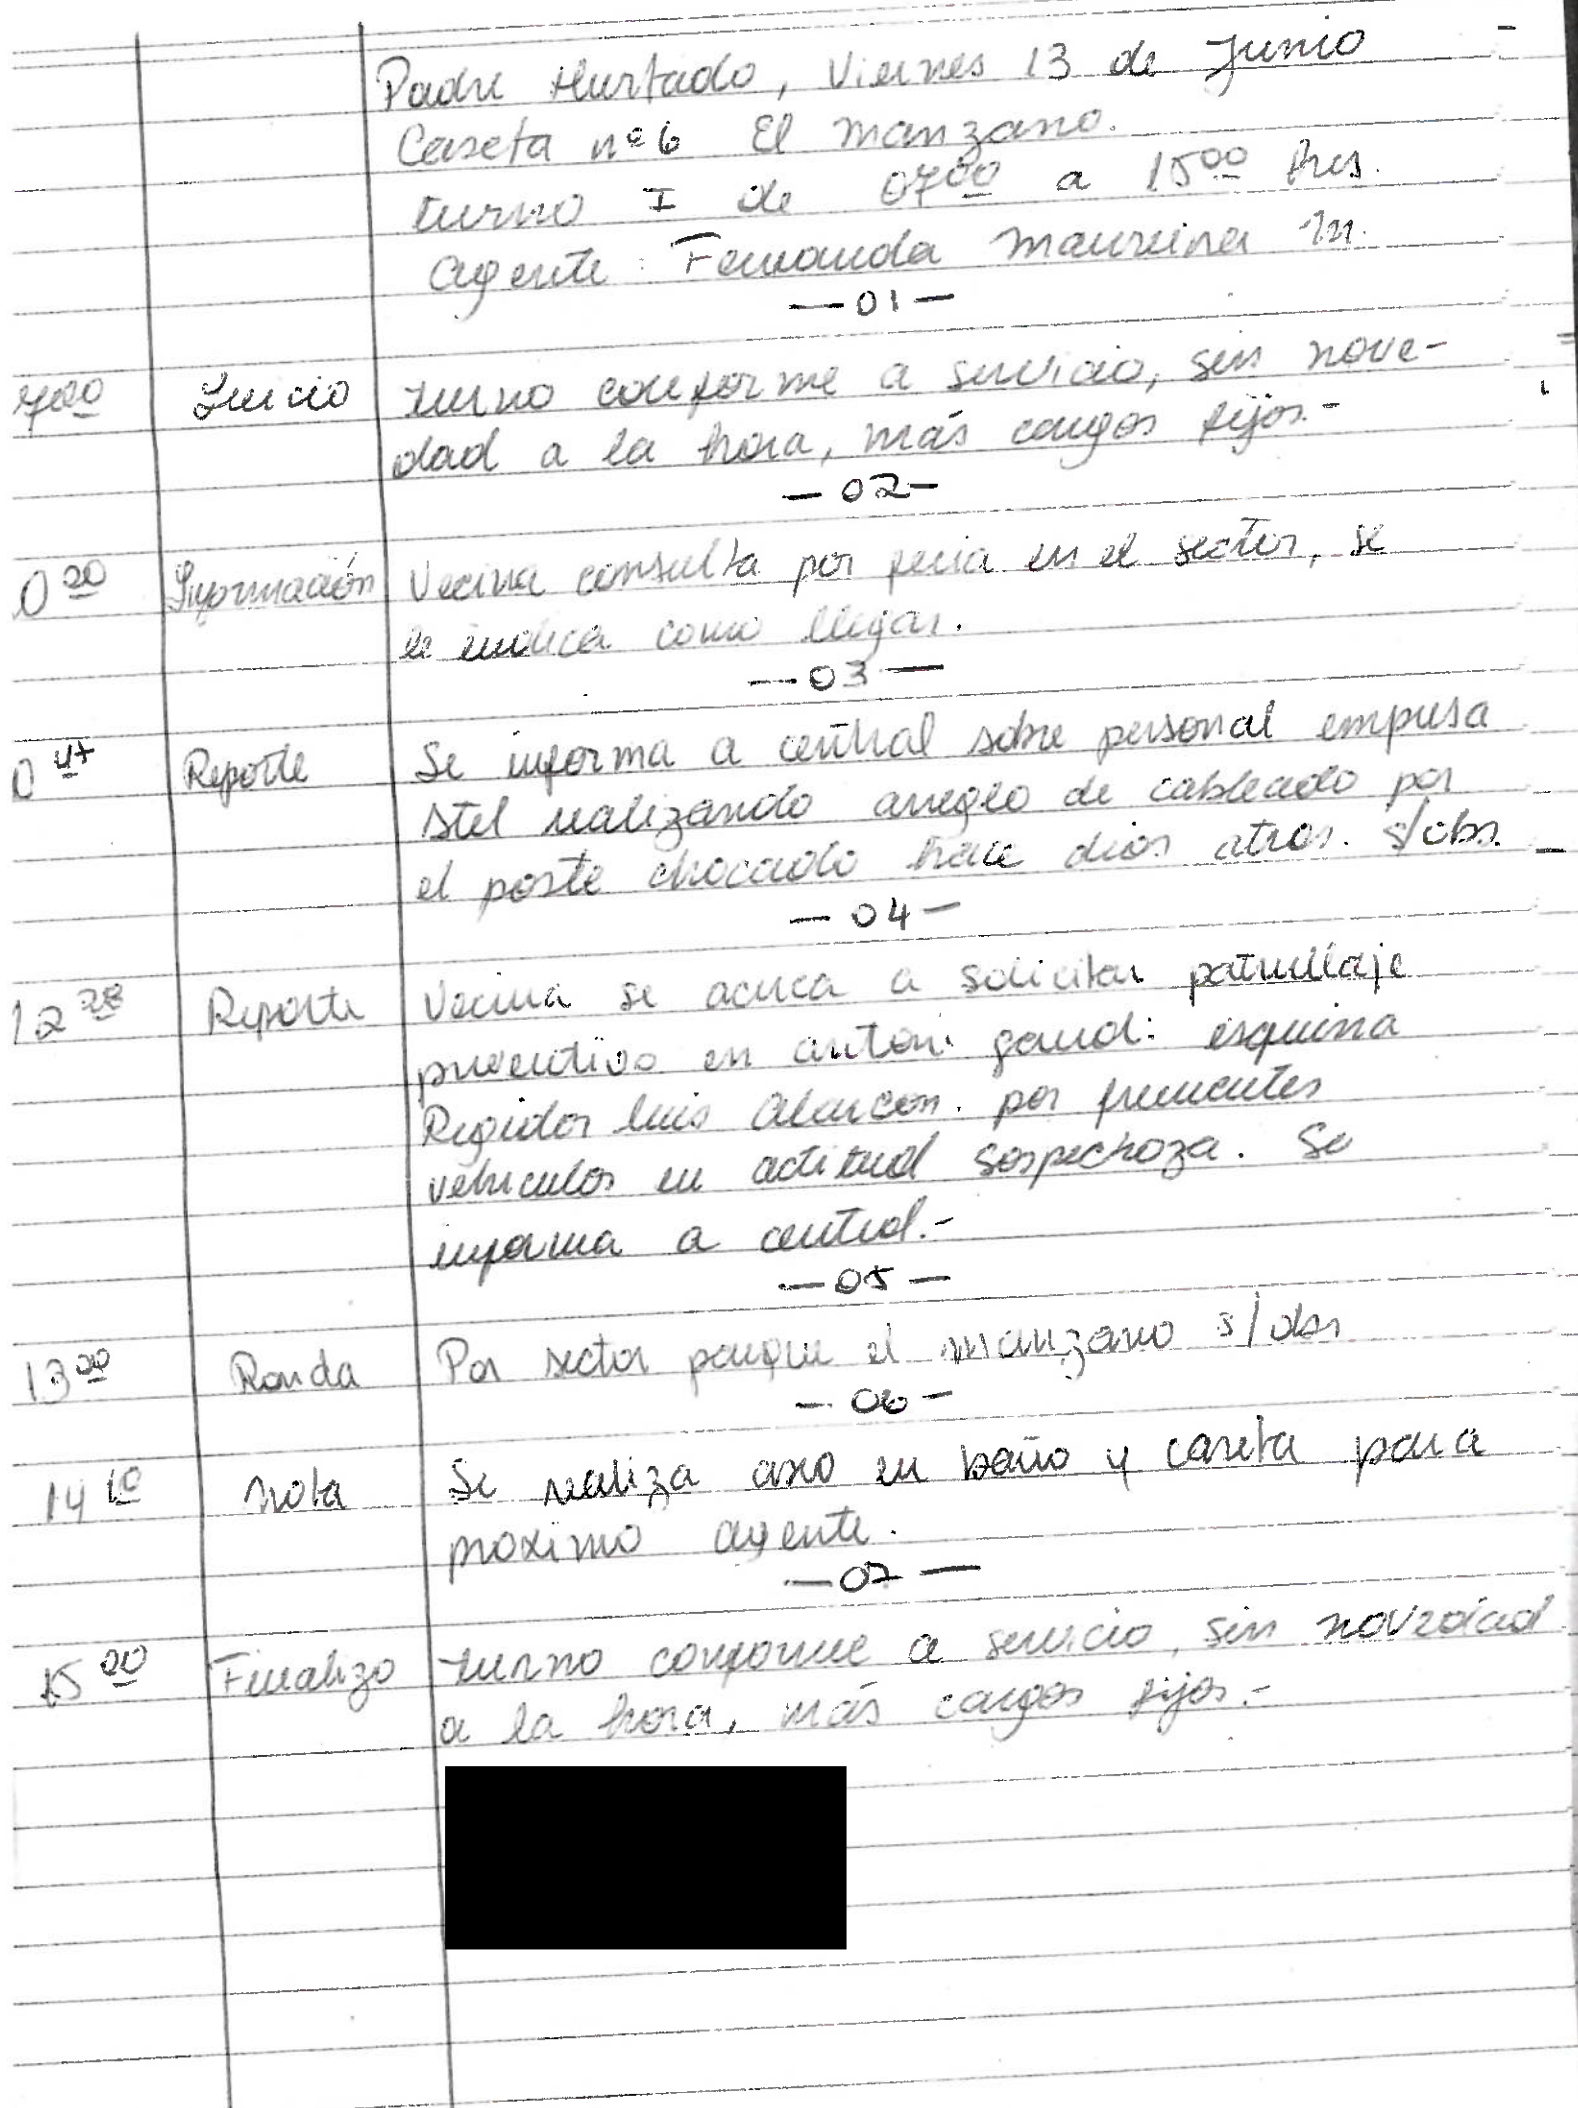 Padre Hurtado, Viernes 13 de Junio
Caseta n° 6 El manzano.
turno I de 0700 a 1500 hrs.
agente: Fernanda Maureira M.
—01—
700 Inicio turno conforme a servicio, sin nove-
dad a la hora, más cargos fijos.-
—02—
020 Información Vecina consulta por feria en el sector, se
le indica como llegar.
—03—
047 Reporte Se informa a central sobre personal empresa
stel realizando arreglo de cableado por
el poste chocado hace dias atras. s/obs.
—04—
1228 Reporte Vecina se acerca a solicitar patrullaje
preventivo en antoni gaudi esquina
Regidor luis Alarcon. por frecuentes
vehiculos en actitud sospechoza. Se
informa a central.-
—05—
1300 Ronda Por sector parque el manzano s/obs
—06—
1410 nota Se realiza aseo en baño y caseta para
proximo agente.
—07—
1500 Finalizo turno conforme a servicio, sin novedad
a la hora, más cargos fijos.-